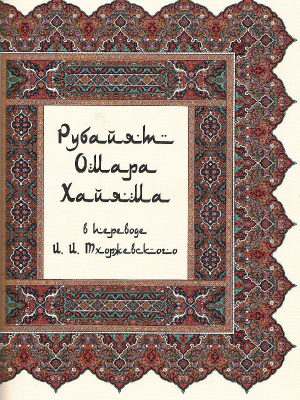 Рубайят
Омара
Хайяма
в переводе
И. И. Тхоржевского